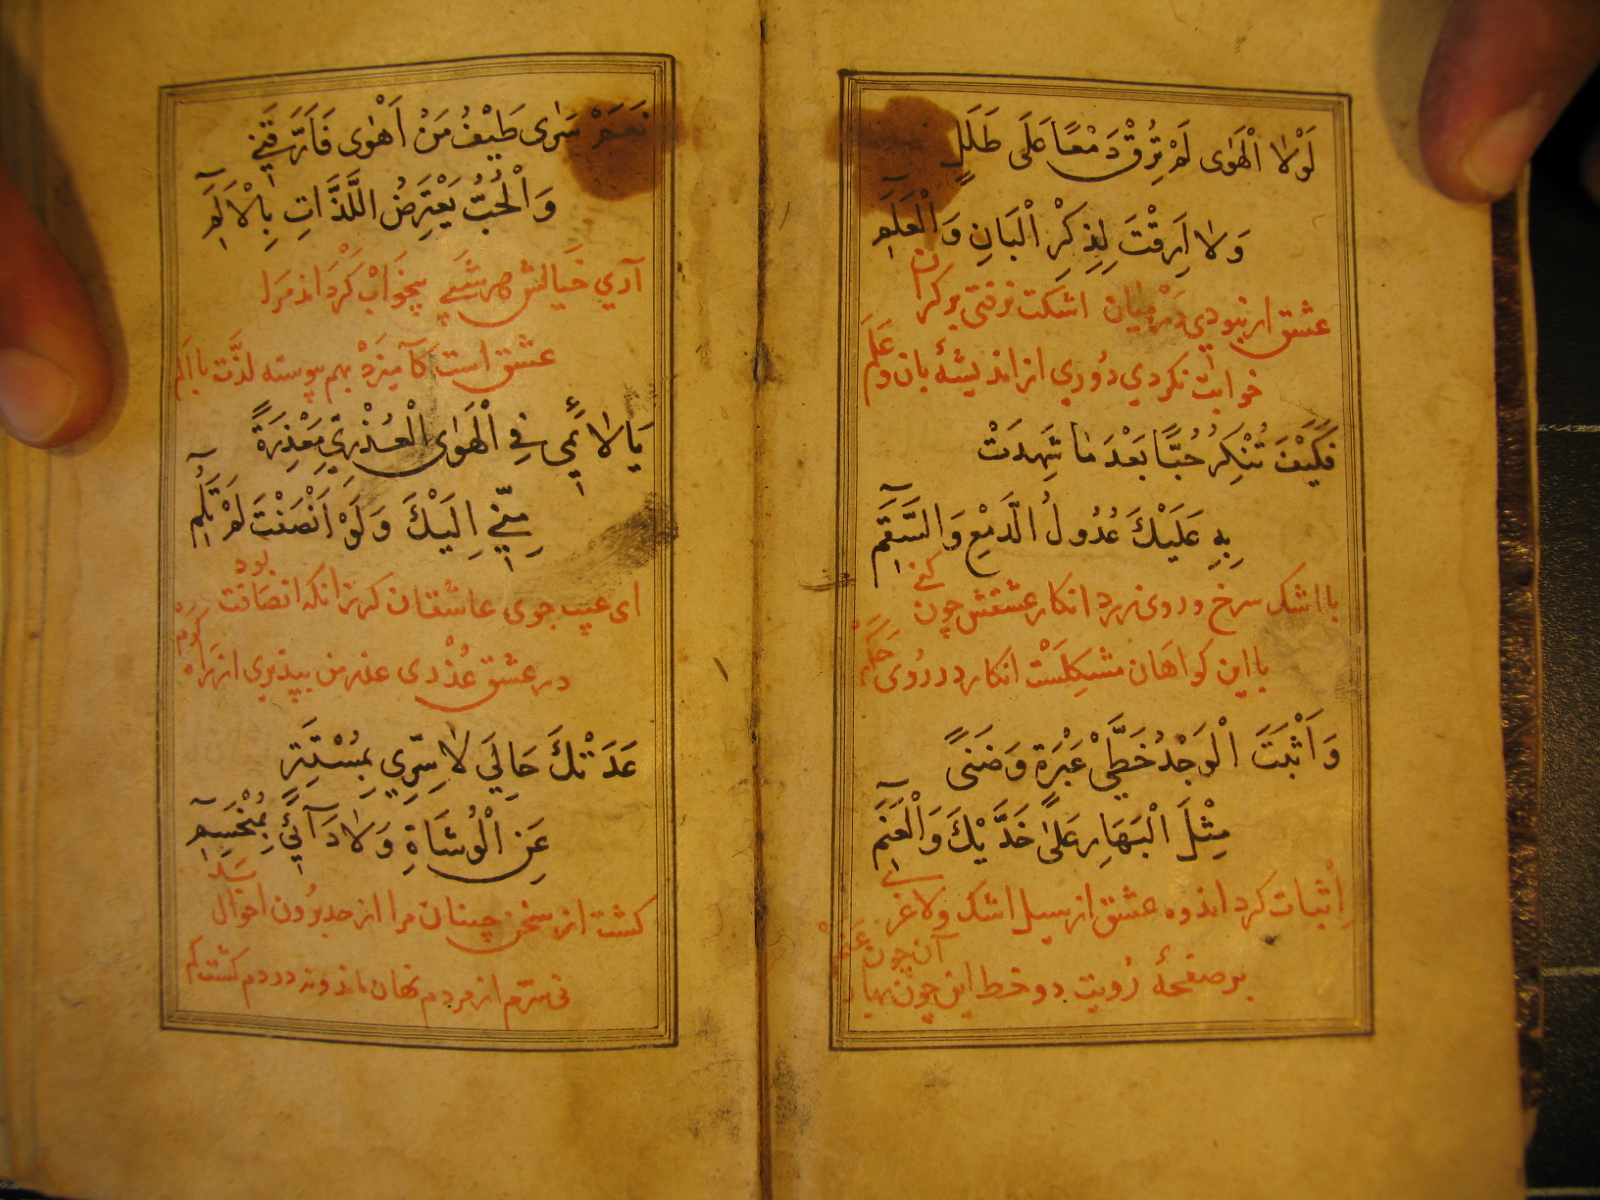 لَوْلَا الْهَوٰى لَمْ تُرِقْ دَمْعًا عَلَى طَلَلٍ
وَلَا اَرِقْتَ لِذِكْرِ الْبَانِ وَالْعَلَمِ
عشق ار نبودي در ميان اشكت نرفتى بر كران
خوابت نكردي دوري از انديشهٔ بان و علم
فَكَيْفَ تُنْكِرُ حُبًّا بَعْدَ مَا شَهِدَتْ
بِهِ عَلَيْكَ عُدُولُ الدَّمْعِ وَالسَّقَمِ
با اشك سرخ و روى زرد انكار عشقش چون كنى
با اين كواهان مشكلست انكار در روى حكم
وَاَثْبَتَ الْوَجْدُ خَطَّيْ عَبْرَةٍ وَضَنًى
مِثْلَ الْبَهَارِ عَلٰى خَدَّيْكَ وَالْعَنَمِ
اثبات كرد اندوه عشق از سيل اشك ولاغرى
بر صفحهٔ رويت دو خط اين چون بهار آن چون عنم
نَعَمْ سَرٰى طَيْفُ مَنْ اَهْوٰى فَاَرَّقَنِي
وَالْحُبُّ يَعْتَرِضُ اللَّذَّاتِ بِالْاَلَمِ
آري خيالش هر شبى بيخواب كرد اند مرا
عشق است كآميزد بهم پيوسته لذت با الم
يَا لَائِمِي فِي الْهَوٰى الْعُذْرِيِّ مَعْذِرَةً
مِنِّي اِلَيْكَ وَلَوْ اَنْصَفْتَ لَمْ تَلُمِ
اى عيب جوى عاشقان كر زانكه انصافت بود
در عشق عذرى عذر من بپذيرى از راه كرم
عَدَتْكَ حَالِيَ لَا سِرِّي بِمُسْتَتِرٍ
عَنِ الْوُشَاةِ وَلَا دَآئِي بِمُنْحَسِمِ
كشت از سخن چينان مرا از حد برون احوال
نى سرم از مردم نهان ماند ونه دردم كشت كم